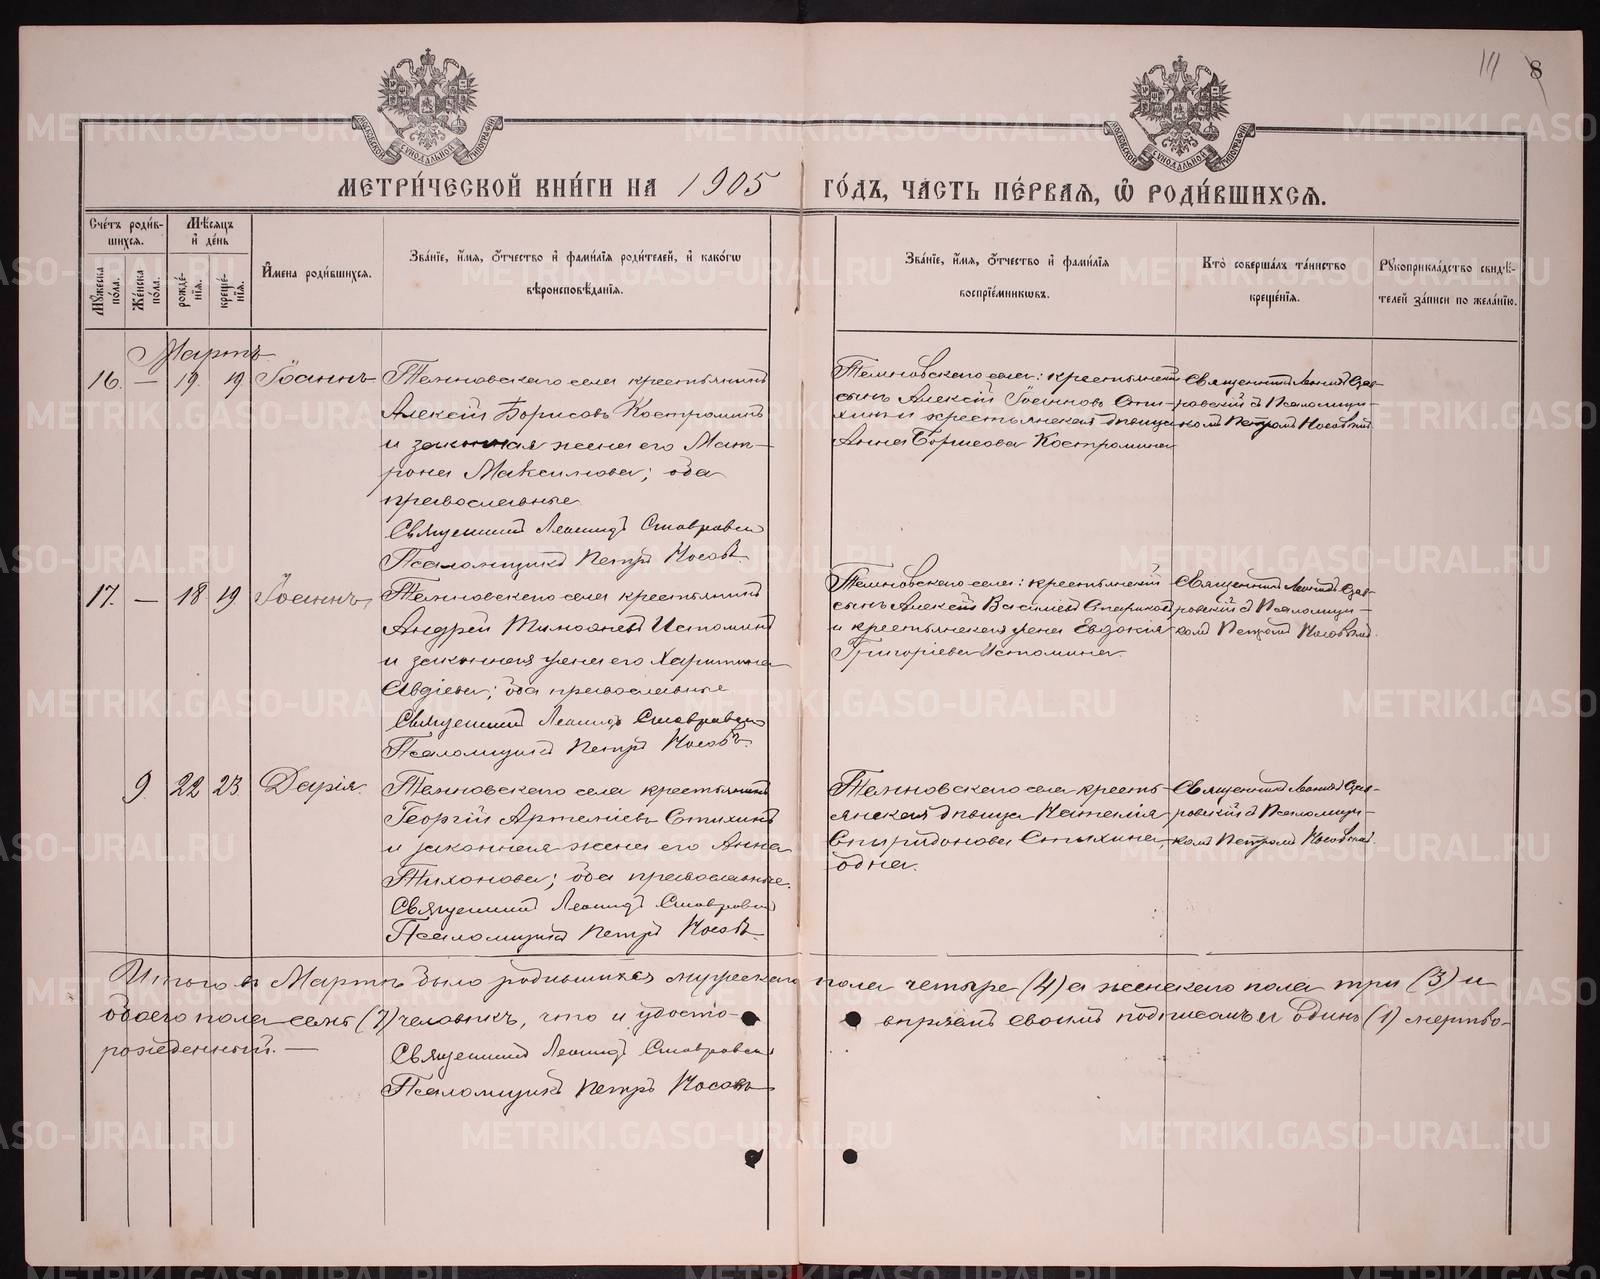 14 8
МОСКОВСКОЙ СУНОДАЛЬНОЙ ТИПОГРАФІИ
МОСКОВСКОЙ СУНОДАЛЬНОЙ ТИПОГРАФІИ
МЕТРИ́ЧЕСКОЙ КНИ́ГИ НА 1905 ГО́ДЪ, ЧА́СТЬ ПЕ́РВАЯ, Ѡ҆ РОДИ́ВШИХСЯ.
Сче́тъ роди́в-
шихся.
Мѣсяцъ
и҆ де́нь
Мꙋжеска
по́ла.
Же́нска
по́ла.
рожде́-
нїя.
креще́-
нїя.
И҆мена роди́вшихся.
Зва́нїе, и҆́мя, ѻ҆́тчество и҆ фами́лїя роди́телей, и҆ како́гѡ
вѣроисповѣ́данїя.
Зва́нїе, и҆́мя, ѻ҆́тчество и҆ фами́лїя
воспрїе́мникѡвъ.
Кто̀ соверша́лъ та́инство
креще́нїя.
Рꙋкоприкла́дство свидѣ́-
телей за́писи по жела́нїю.
Мартъ
16. — 19. 19 Іоаннъ
Темновскаго села крестьянинъ
Алексѣй Борисовъ Костроминъ
и законная жена его Мат-
рона Максимова; оба
православные
Священникъ Леонидъ Ставровскій
Псаломщикъ Петръ Носовъ
Темновскаго села: крестьянскій
сынъ Алексѣй Іоанновъ Спи-
и крестьянская дѣвица
Анна Борисова Костромина
Священникъ Леонидъ Став-
ровскій съ Псаломщи-
комъ Петромъ Носовымъ
17. — 18 19 Іоаннъ
Темновскаго села крестьянинъ
Андрей Тимофеевъ Истоминъ
и законная жена его Харитина
Авдіева; оба православные
Священникъ Леонидъ Ставровскій
Псаломщикъ Петръ Носовъ
Темновскаго села: крестьянскій
сынъ Алексѣй Василіевъ
и крестьянская жена Евдокія
Григоріева Истомина.
Священникъ Леонидъ Став-
ровскій съ Псаломщи-
комъ Петромъ Носовымъ.
9 22 23 Дарія.
Темновскаго села крестьянинъ
Георгій Артеміевъ Стихинъ
и законная жена его Анна
Тихонова; оба православные.
Священникъ Леонидъ Ставровскій
Псаломщикъ Петръ Носовъ
Темновскаго села кресть-
янская дѣвица Наталія
Спиридонова Стихина
одна.
Священникъ Леонидъ Став-
ровскій съ Псаломщи-
комъ Петромъ Носовымъ.
Итого въ Мартѣ было родившихся мужескаго пола четыре (4) а женскаго пола три (3) и
обоего пола семь (7) человѣкъ, что и удосто- вѣряемъ своимъ подписомъ и Одинъ (1) мертво-
рожденный. —
Священникъ Леонидъ Ставровскій
Псаломщикъ Петръ Носовъ
METRIKI.GASO-URAL.RU